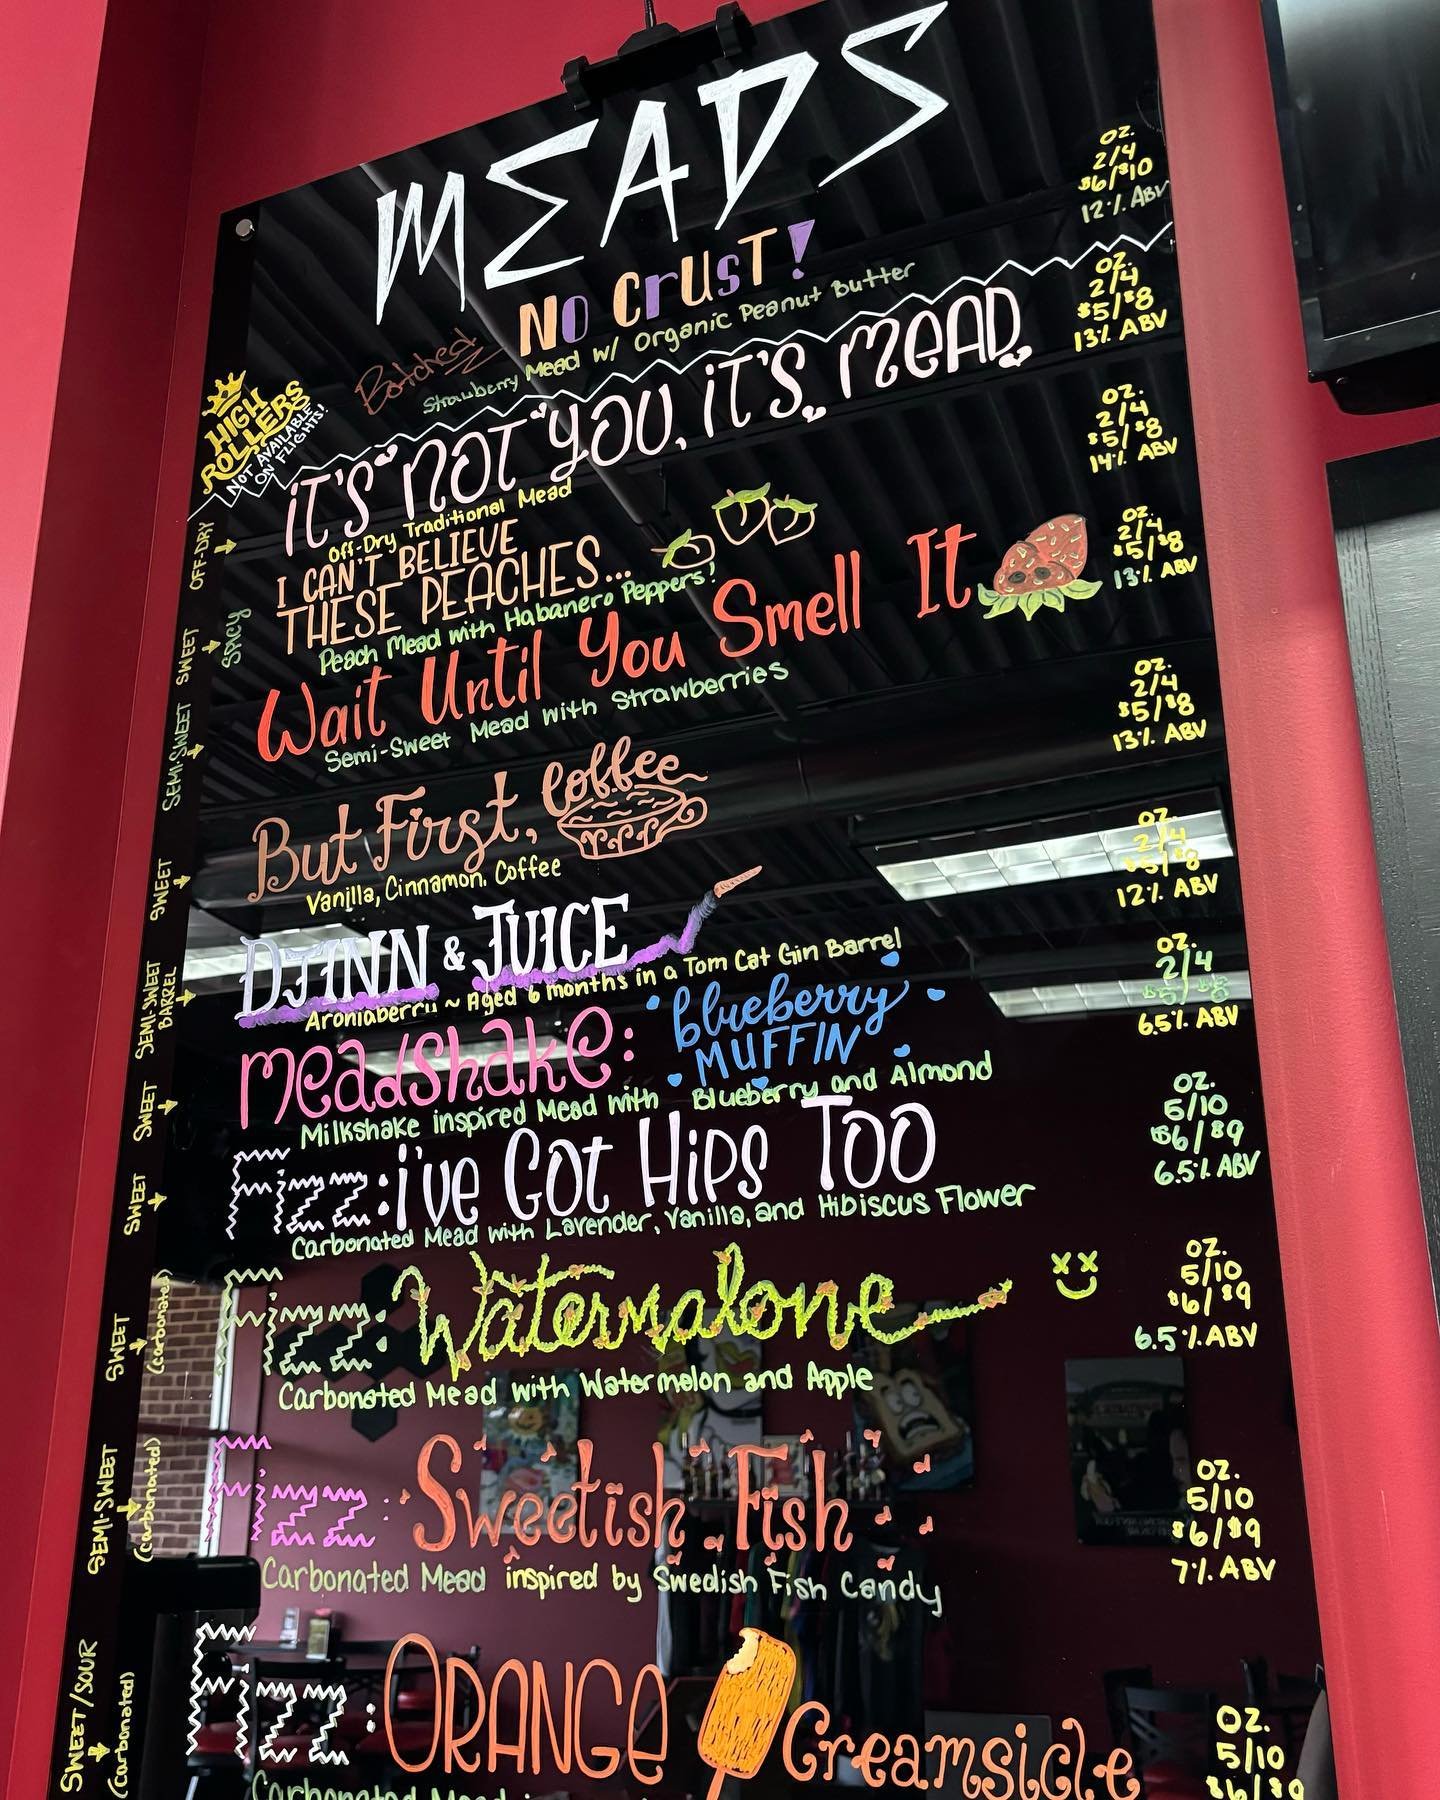 MEADS
OZ.
2/4
$6/$10
12% ABV
HIGH
ROLLERS
NOT AVAILABLE
ON FLIGHTS!
Botched
NO CrUsT!
Strawberry Mead w/ Organic Peanut Butter
OZ.
2/4
$5/$8
13% ABV
OFF-DRY
iT'S NOT YOU, iT'S MEAD
Off-Dry Traditional Mead
OZ.
2/4
$5/$8
14% ABV
SWEET
SPICY
I CAN'T BELIEVE
THESE PEACHES...
Peach Mead with Habanero Peppers!
OZ.
2/4
$5/$8
13% ABV
SEMI-SWEET
Wait Until You Smell It
Semi-Sweet Mead with Strawberries
OZ.
2/4
$5/$8
13% ABV
SWEET
But First, Coffee
Vanilla, Cinnamon, Coffee
OZ.
2/4
$5/$8
12% ABV
SEMI-SWEET
BARREL
DJINN & JUICE
Aroniaberry ~ Aged 6 months in a Tom Cat Gin Barrel
OZ.
2/4
$5/$8
6.5% ABV
SWEET
meadshake: blueberry
MUFFIN
Milkshake inspired Mead with Blueberry and Almond
OZ.
5/10
$6/$9
6.5% ABV
SWEET
Fizz: i've Got Hips Too
Carbonated Mead with Lavender, Vanilla, and Hibiscus Flower
OZ.
5/10
$6/$9
6.5% ABV
SWEET
(carbonated)
Fizz: Watermalone
Carbonated Mead with Watermelon and Apple
OZ.
5/10
$6/$9
7% ABV
SEMI-SWEET
(carbonated)
Fizz: Sweetish Fish
Carbonated Mead inspired by Swedish Fish Candy
OZ.
5/10
$6/$9
SWEET/SOUR
(carbonated)
Fizz: ORANGE Creamsicle
Carbonated Mead